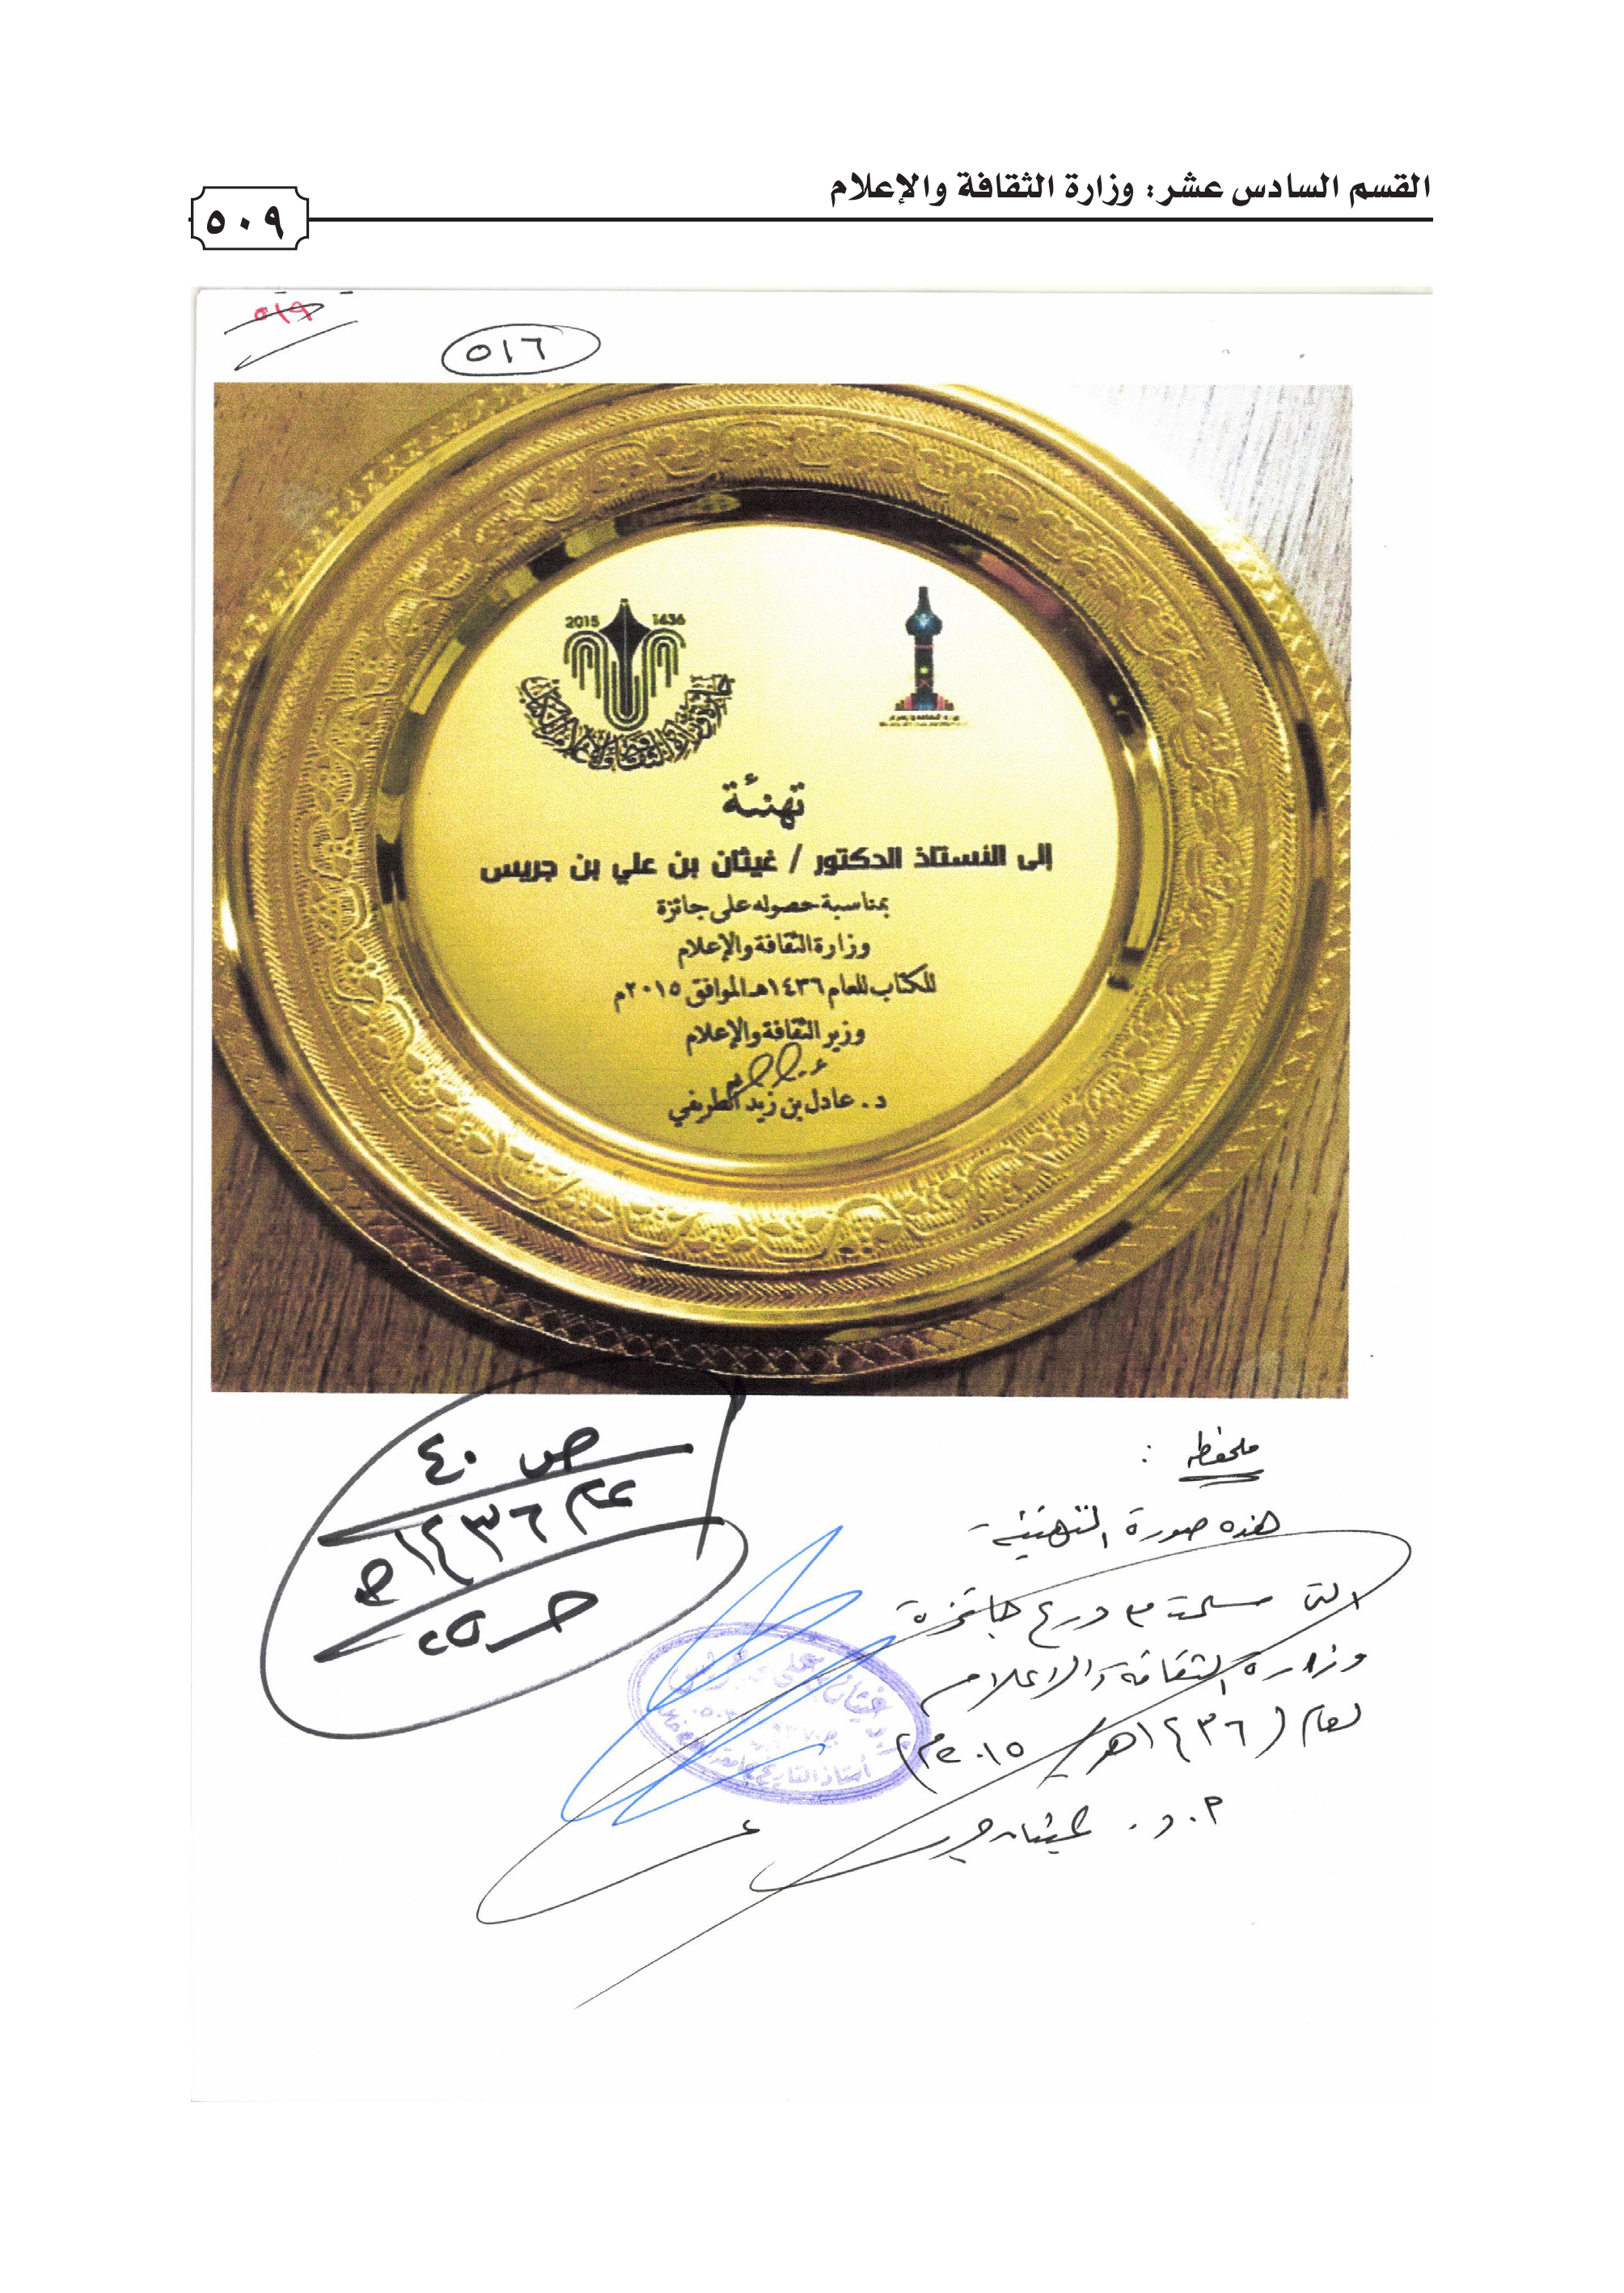 القسم السادس عشر: وزارة الثقافة والإعلام
٥٠٩
٥١٩
٥١٦
2015 1436
تهنئة
إلى الأستاذ الدكتور / غيثان بن علي بن جريس
بمناسبة حصوله على جائزة
وزارة الثقافة والإعلام
للكتاب للعام ١٤٣٦هـ الموافق ٢٠١٥م
وزير الثقافة والإعلام
د. عادل بن زيد الطريفي
ص ٤٠
عام ١٤٣٦هـ
ملحوظة :
هذه صورة التهنئة
التي درع جائزة
وزارة الثقافة والاعلام
لعام (١٤٣٦هـ / ٢٠١٥م)
أ. د. غيثان جريس
غيثان بن علي بن جريس
أستاذ التاريخ